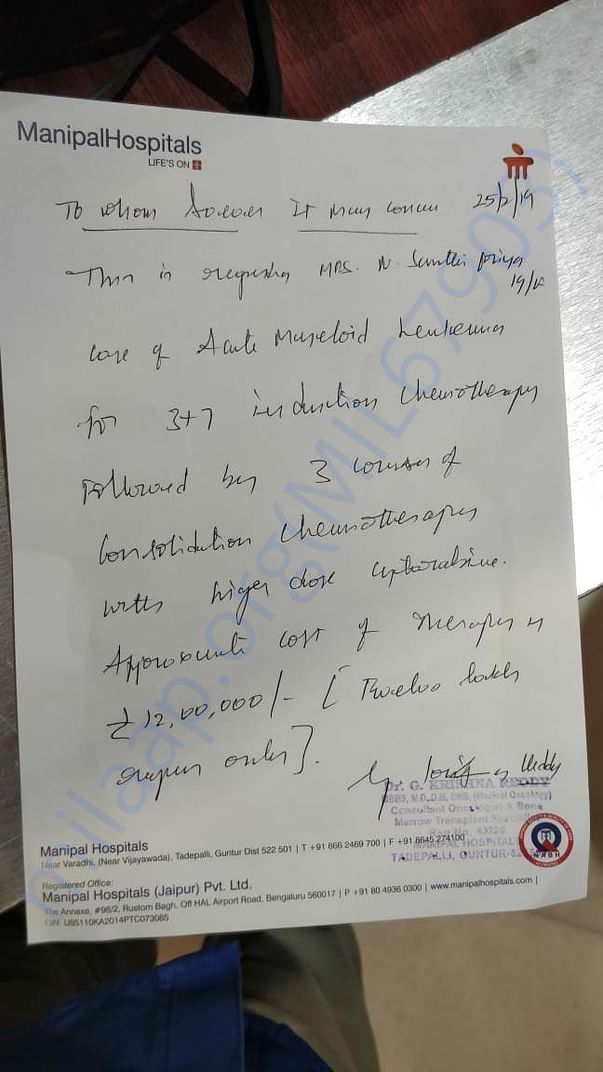 ManipalHospitals
LIFE'S ON
To whom Soever It May Concern 25/2/19
This is regarding MRS. N. Santhi priya
19/F
case of Acute Myeloid Leukemia
for 3+7 induction Chemotherapy
followed by 3 courses of
Consolidation Chemotherapy
with higer dose cytarabine.
Approximate cost of therapy is
₹ 12,00,000/- [ Twelve lakhs
rupees only ].
Dr. G. KRISHNA REDDY
MBBS, M.D, D.M, (Medical Oncology)
Consultant Oncologist & Bone
Marrow Transplant Specialist
Reg. No. 43220
MANIPAL HOSPITALS
TADEPALLI, GUNTUR-52
NABH
Manipal Hospitals
Near Varadhi, (Near Vijayawada), Tadepalli, Guntur Dist 522 501 | T +91 866 2469 700 | F +91 8645 274100
Registered Office:
Manipal Hospitals (Jaipur) Pvt. Ltd.
The Annexe, #98/2, Rustom Bagh, Off HAL Airport Road, Bengaluru 560017 | P +91 80 4936 0300 | www.manipalhospitals.com |
CIN: U85110KA2014PTC073085
milaap.org(MIL67905)